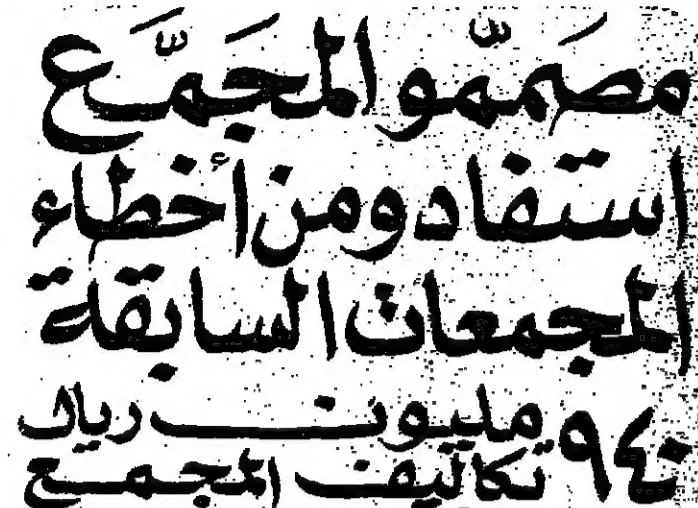 مصَمّمو المجَمَّع
استفادو من أخطاء
المجمعات السابقة
٩٤٠ مليون ريال
تكاليف المجمع